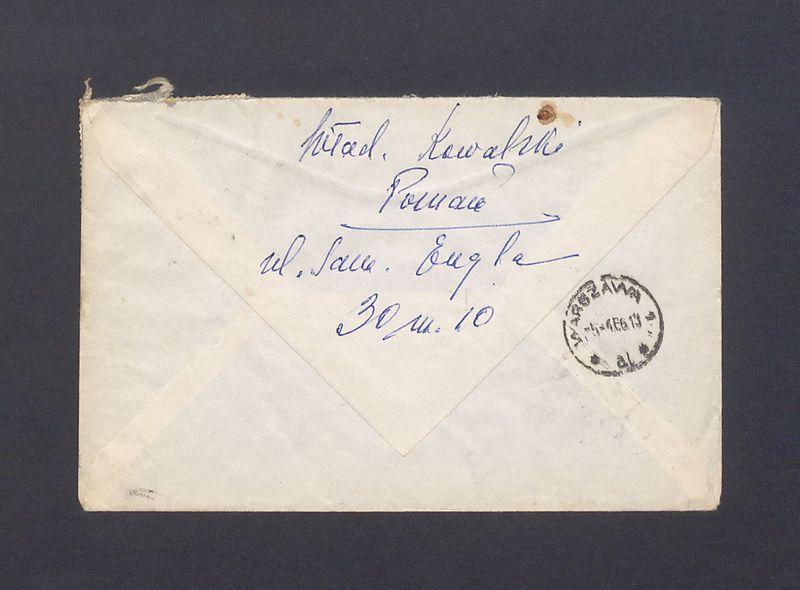 Wład. Kowalski
Poznań
ul. Sam. Engla
30 m. 10
WARSZAWA 1